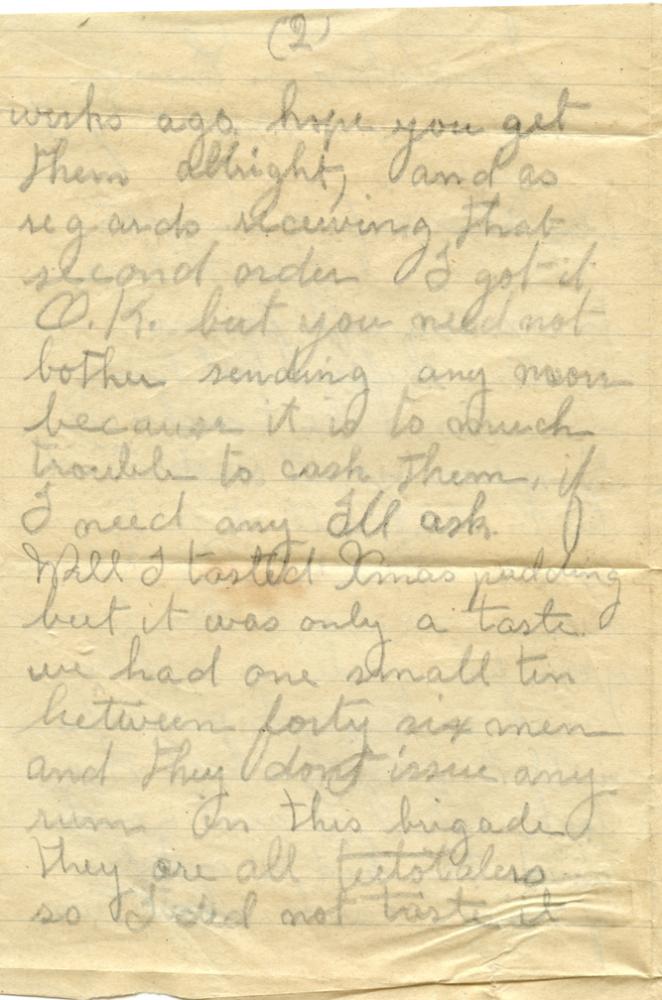 (2)
weeks ago, hope you get
them allright, and as
regards receiving that
second order I got it
O.K. but you need not
bother sending any more
because it is to much
trouble to cash them, if
I need any Ill ask.
Well I tasted Xmas pudding
but it was only a taste
we had one small tin
between forty six men
and they dont issue any
rum in this brigade
they are all teetotalers
so I did not taste it